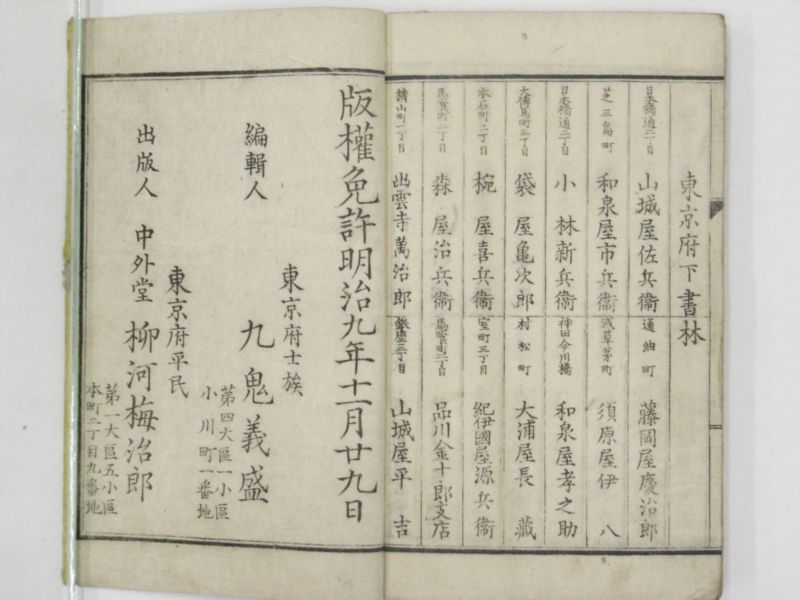 東京府下書林
日本橋通二丁目 山城屋佐兵衞
通油町 藤岡屋慶治郎
芝三島町 和泉屋市兵衞
浅草茅町 須原屋伊八
日本橋通二丁目 小林新兵衞
神田今川橋 和泉屋孝之助
大傳馬町三丁目 袋屋亀次郎
村松町 大浦屋長藏
本石町二丁目 椀屋喜兵衞
室町三丁目 紀伊國屋源兵衞
馬喰町二丁目 森屋治兵衞
馬喰町二丁目 品川金十郎支店
横山町一丁目 出雲寺萬治郎
銀座三丁目 山城屋平吉
版權免許明治九年十一月廿九日
東京府士族
編輯人 九鬼義盛
第四大區一小區
小川町一番地
東京府平民
出版人 中外堂 柳河梅治郎
第一大區五小區
本町二丁目九番地